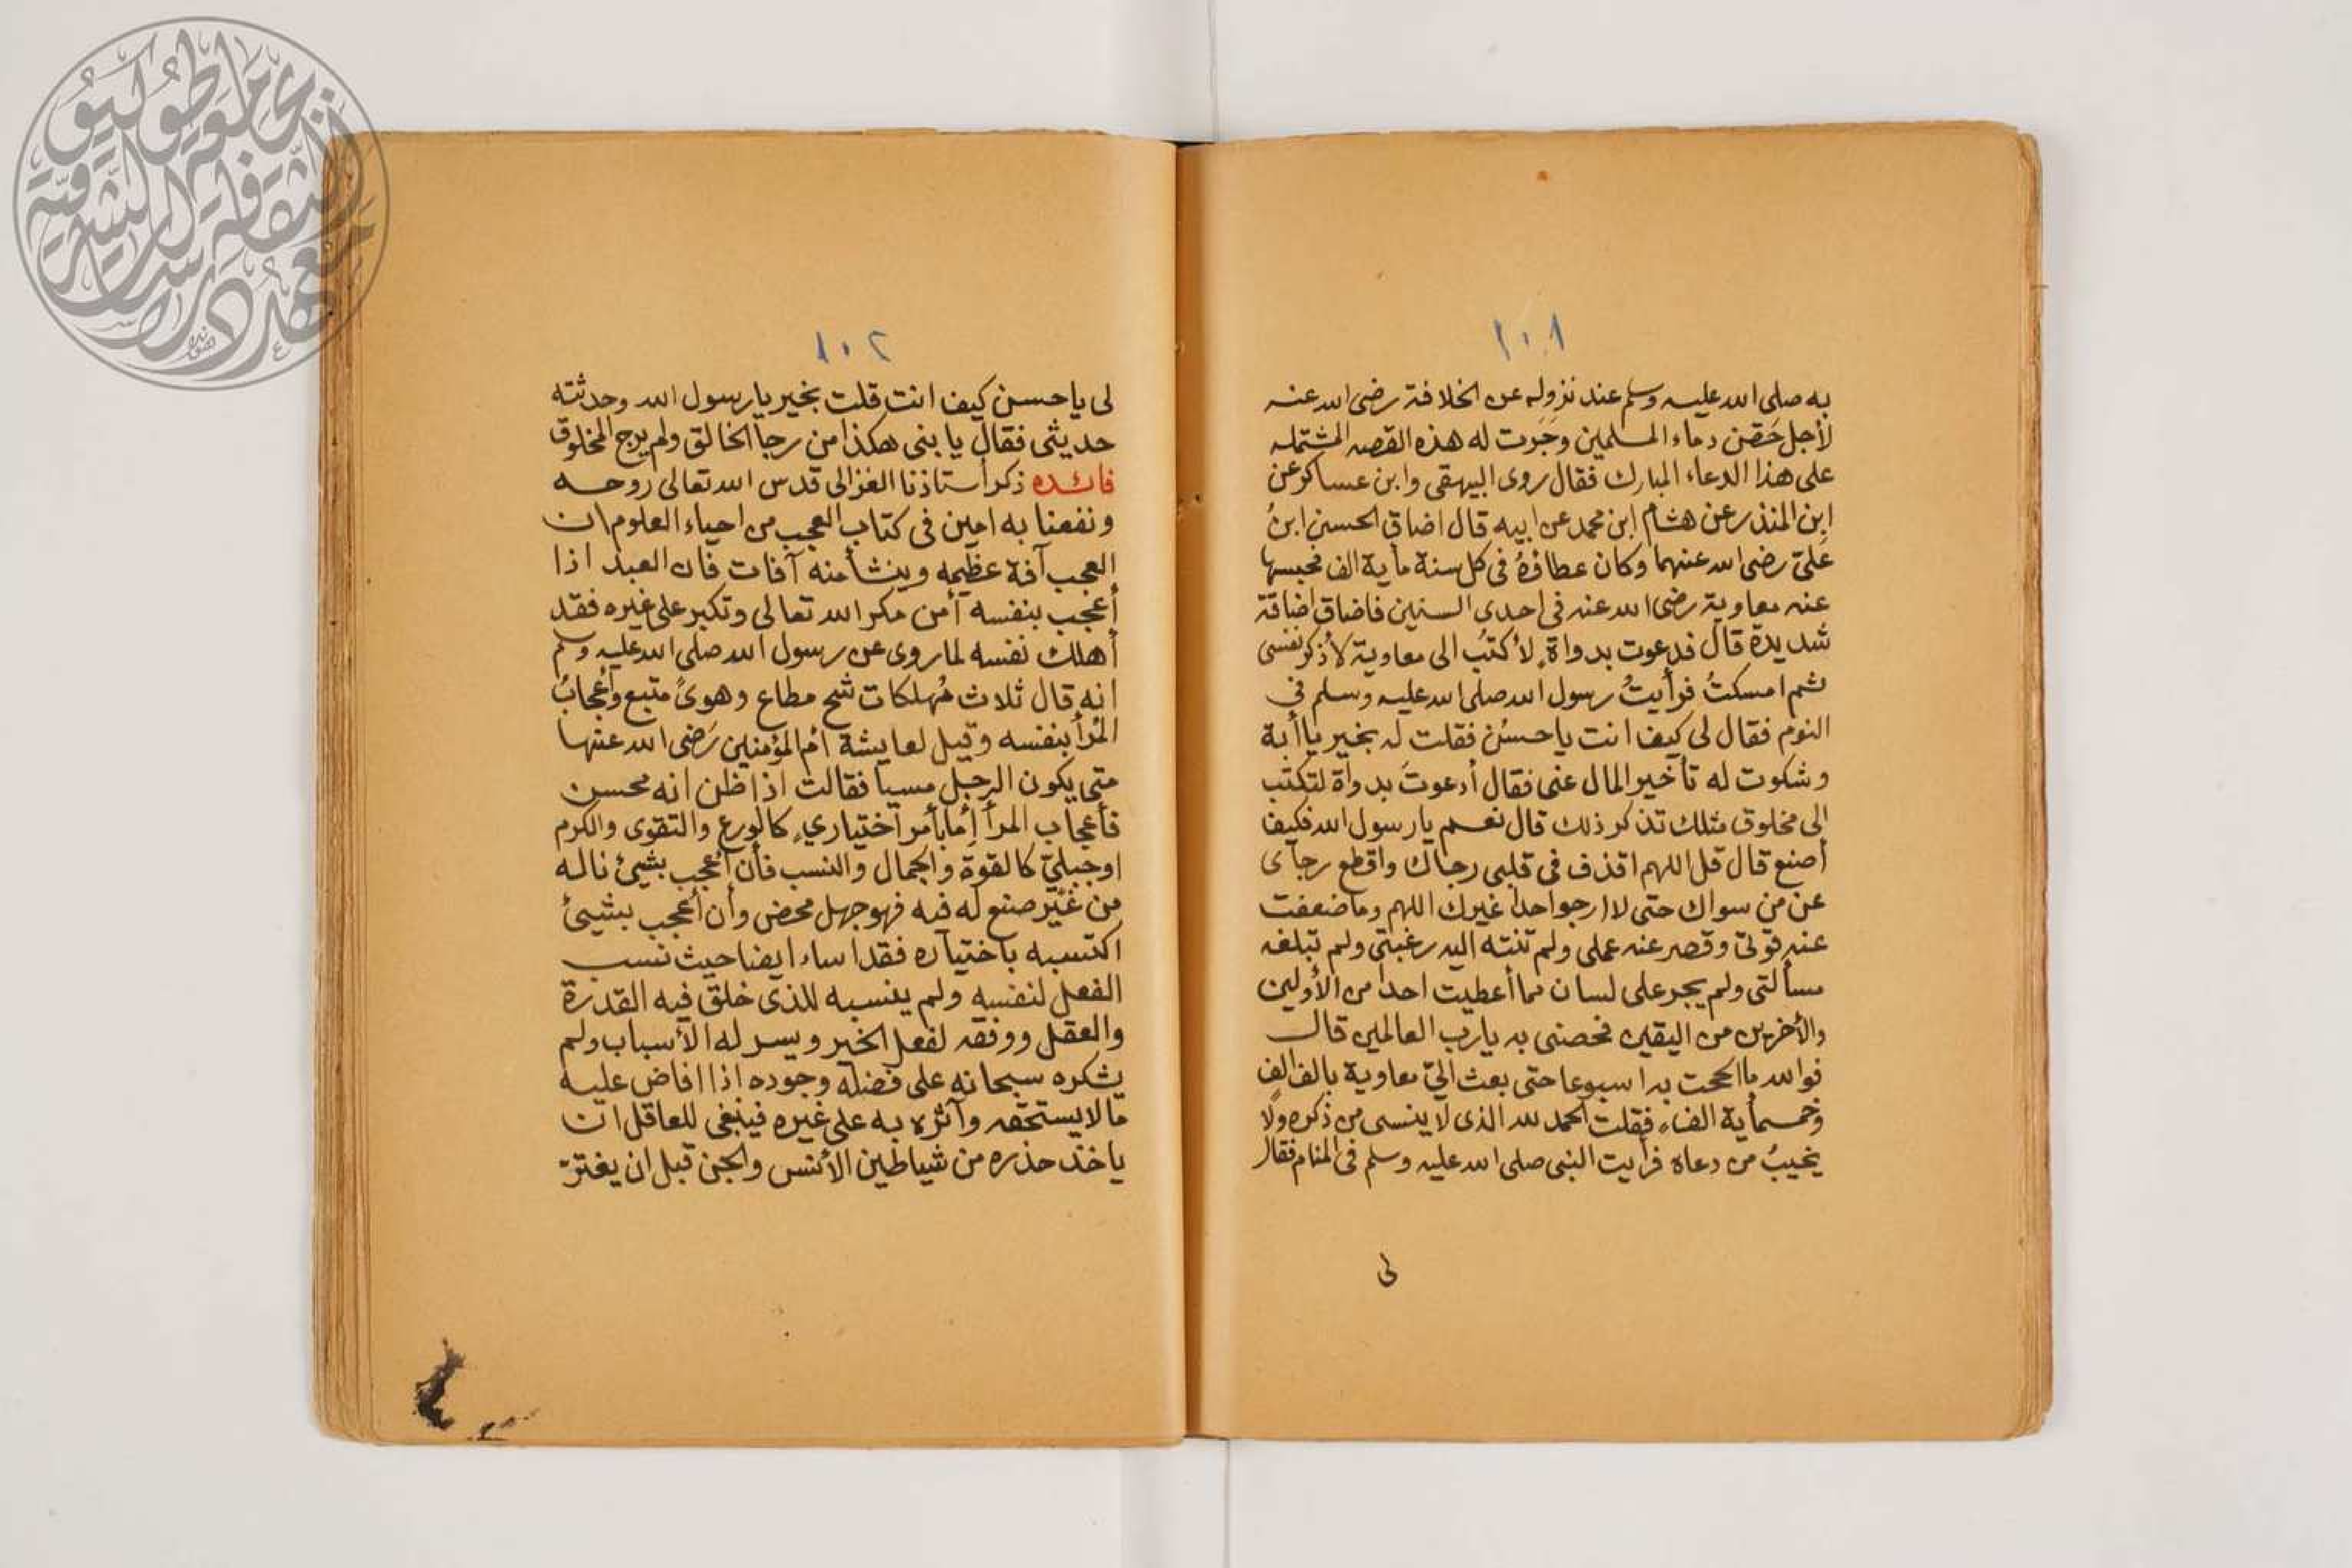 ١٠١
به صلى الله عليه وسلم عند نزوله عن الخلافة رضى الله عنه
لأجل حَقن دماء المسلمين وجَرت له هذه القصه المشتمله
على هذا الدعاء المبارك فقال روى البيهقى وابن عساكر عن
ابن المنذر عن هشام ابن محمد عن ابيه قال اضاق الحسن ابنُ
عَلىّ رضى الله عنهما وكان عطاؤهُ فى كل سنة مأية الف فحبسها
عنه معاوية رضى الله عنه فى احدى السنين فاضاق اضاقة
شديدة قال فدعوت بدواةٍ لأكتُب الى معاوية لأذكر نفسى
ثم امسكتُ فرأيتُ رسول الله صلى الله عليه وسلم فى
النوم فقال لى كيف انت ياحسُن فقلت له بخير ياأبة
وشكوت له تأخير المال عنى فقال أدعوتَ بدواة لتكتب
الى مخلوق مثلك تذكر ذلك قال نعم يارسول الله فكيف
أصنع قال قل اللهم اقذف فى قلبى رجاك واقطع رجآى
عن من سواك حتى لا ارجو احدا غيرك اللهم وما ضعفت
عنه قوّتى وقصر عنه عملى ولم تنته اليه رغبتى ولم تبلغه
مسألتى ولم يجر على لسان مما أعطيت احدا من الأولين
والأخرين من اليقين فحصنى به يارب العالمين قال
فوالله ماالححت به اسبوعا حتى بعث الىّ معاوية بالف الف
وخمسمأية الفاء فقلت الحمد لله الذى لا ينسى من ذكره ولا
يخيبُ من دعاه فرأيت النبى صلى الله عليه وسلم فى المنام فقال
لى
١٠٢
لى ياحسن كيف انت قلت بخير يارسول الله وحدثته
حديثى فقال يا بنى هكذا من رجا الخالق ولم يرج المخلوق
فائده ذكر أستاذنا الغزالى قدس الله تعالى روحه
ونفعنا به امين فى كتاب العجب من احياء العلوم ان
العجب آفة عظيمه وينشأ منه آفات فان العبد اذا
أعجب بنفسه أمن مكر الله تعالى وتكبر على غيره فقد
أهلك نفسه لما روى عن رسول الله صلى الله عليه وسلم
انه قال ثلاث مُهلكات شح مطاع وهوىً متبع وأعجابُ
المُرأ بنفسه وقيل لعايشة امُ المؤمنين رَضى الله عنها
متى يكون الرجل مسيأ فقالت اذا ظن انه محسن
فأعجاب المرأ إما بأمر اختياريٍ كالورع والتقوى والكرم
اوجبلىّ كالقوة والجمال والنسب فأن أعجب بشيئ ناله
من غير صنع له فيه فهو جهل محض وأن أعجب بشيئ
اكتسبه باختياره فقد اساء ايضا حيث نسب
الفعل لنفسه ولم ينسبه للذى خلق فيه القدرة
والعقل ووفقه لفعل الخير ويسر له الأسباب ولم
يشكره سبحانه على فضله وجوده اذا افاض عليه
مالا يستحقه وآثره به على غيره فينبغى للعاقل ان
ياخذ حذره من شياطين الأنس والجن قبل ان يغترّ